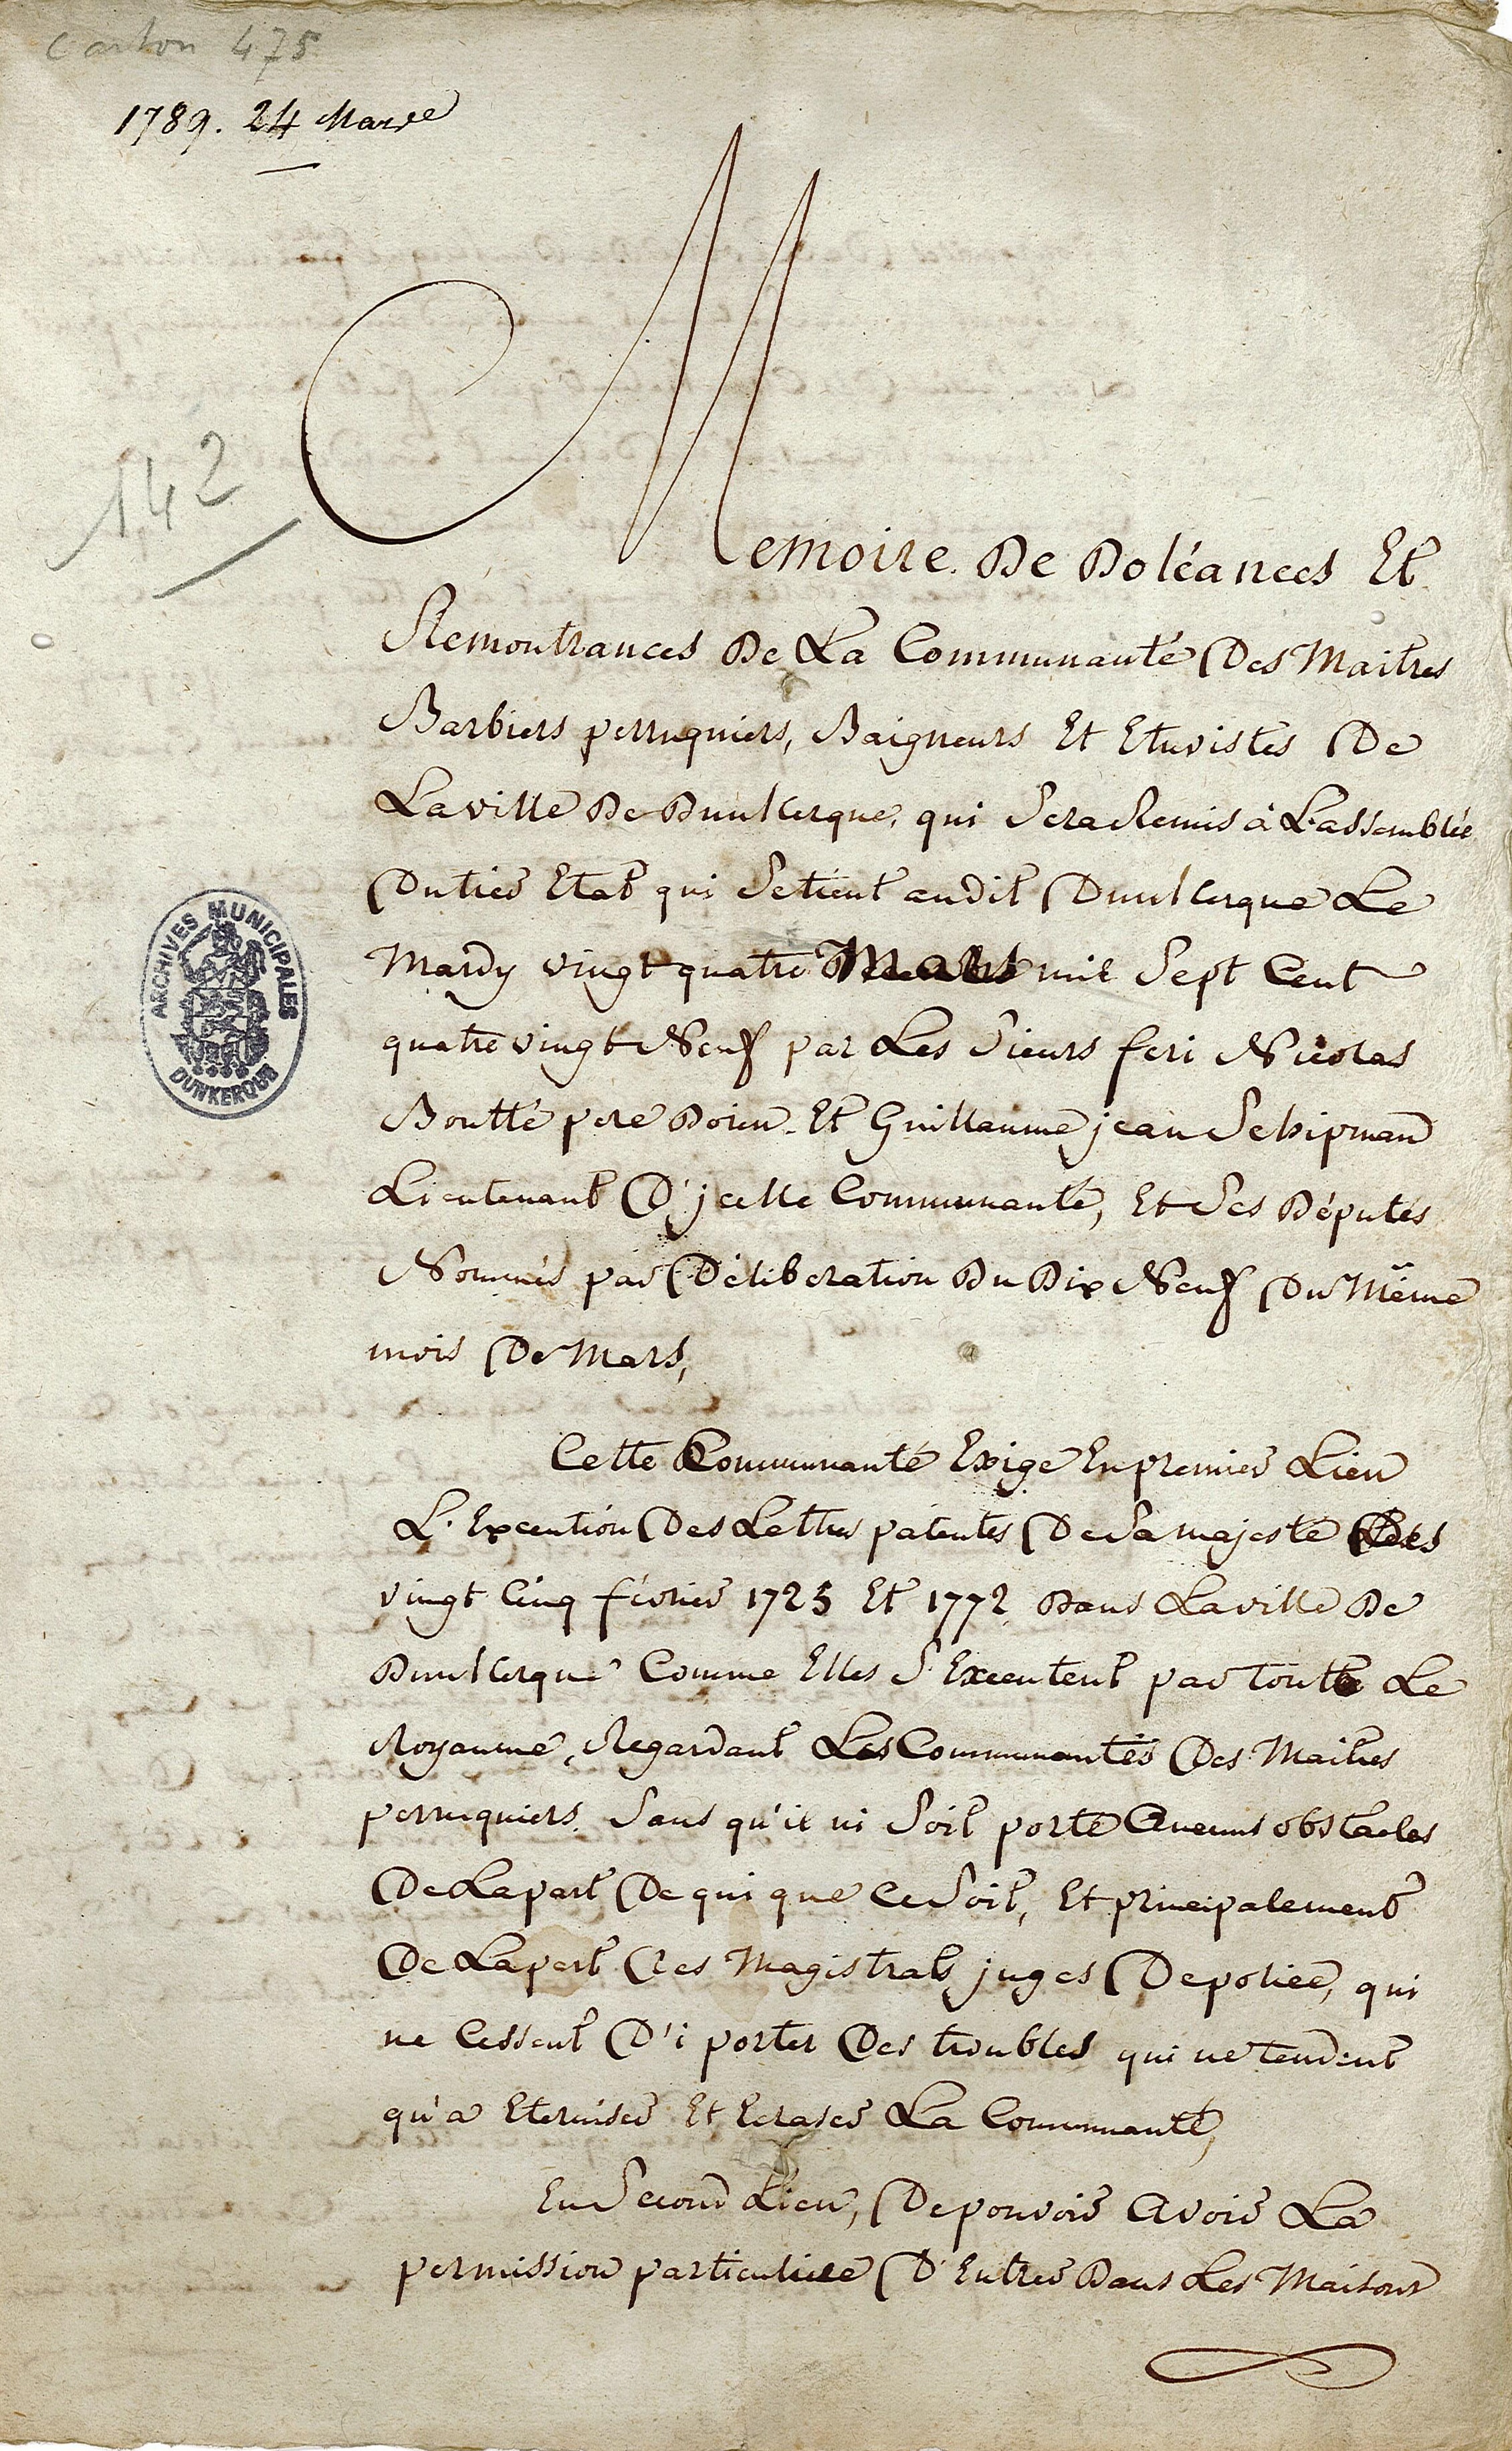 Carton 475
1789. 24 Mars
142
Memoire De Doléances Et
Remontrances De La Communauté Des Maitres
Barbiers perruquiers, Baigneurs Et Etuvistes De
La ville De Dunkerque, qui Sera Remis à L'assemblée
Du tier Etat qui Se tient au dit Dunkerque Le
Mardy vingt quatre Mars mil Sept Cent
quatre vingt Neuf par Les Sieurs feri Nicolas
Boutté pere Doien Et Guillaume jean Schipman
Lieutenant D'jcelle Communauté, Et Ses Députés
Nommés par Déliberation Du Dix Neuf Du Même
mois De Mars,
Cette Communauté Exige En premier Lieu
L'Execution Des Lettres patentes De Sa majesté Des
vingt Cinq février 1725 Et 1772 Dans La ville De
Dunkerque Comme Elles S'Executent par tout Le
Royaume, Regardant Les Communautés Des Maitres
perruquiers. Sans qu'il ni Soit porté Aucuns obstacles
De La part De qui que Ce Soit, Et principalement
De La part Des Magistrats juges De police, qui
ne Cessent D'i porter Des troubles qui ne tendent
qu'a Eterniser Et Ecraser La Communauté,
En Second Lieu, De pouvoir Avoir La
permission particuliere D'Entrer Dans Les Maisons
ARCHIVES MUNICIPALES
DUNKERQUE